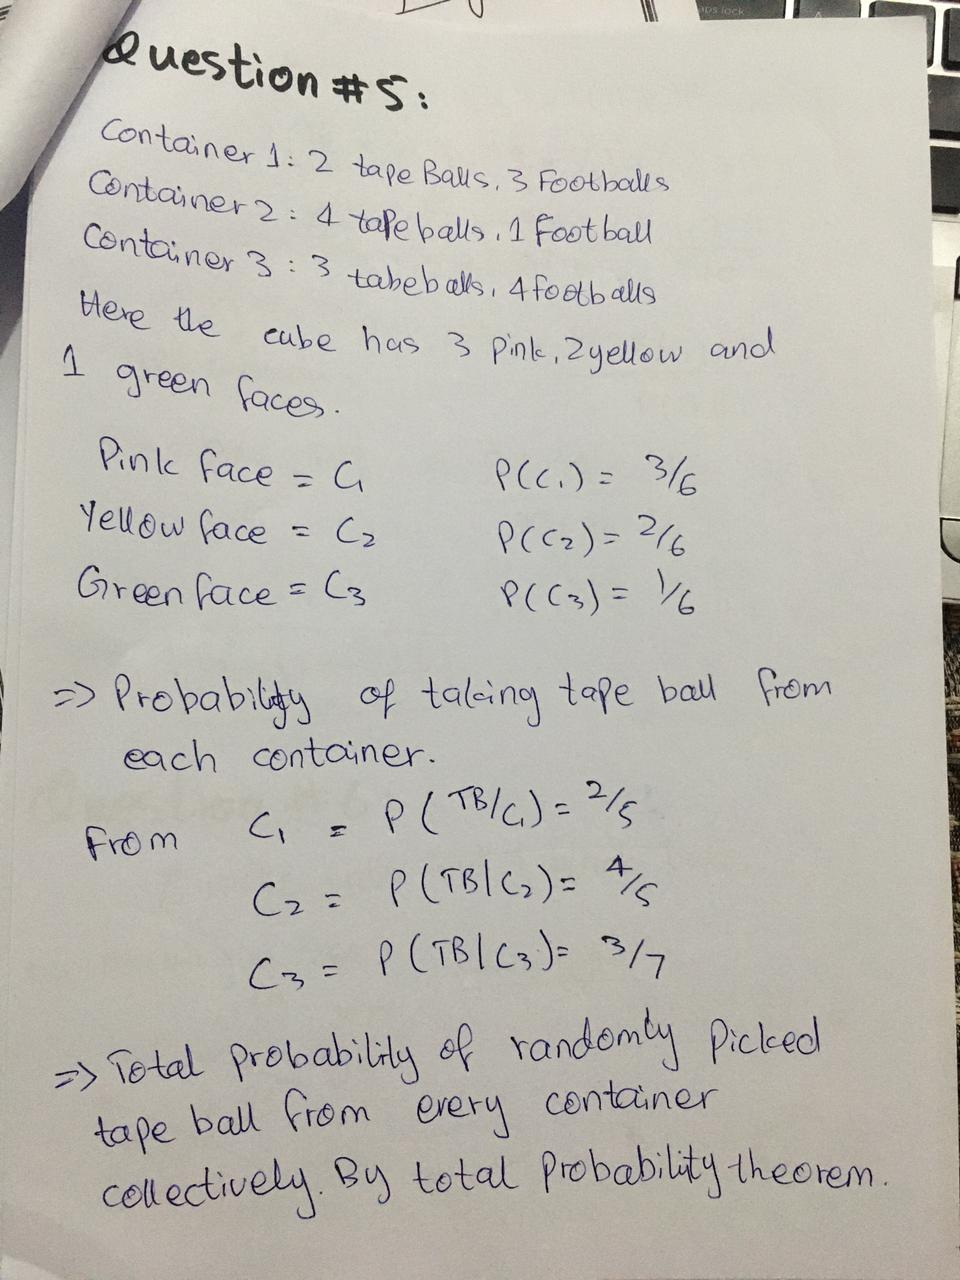 Question #5:
Container 1: 2 tape Balls, 3 Footballs
Container 2: 4 tape balls, 1 Football
Container 3: 3 tabeballs, 4 footballs
Here the cube has 3 pink, 2 yellow and
1 green faces.
Pink face = C₁ P(C₁) = 3/6
Yellow face = C₂ P(C₂) = 2/6
Green face = C₃ P(C₃) = 1/6
=> Probability of taking tape ball from
each container.
From C₁ = P(TB/C₁) = 2/5
C₂ = P(TB|C₂) = 4/5
C₃ = P(TB|C₃) = 3/7
=> Total probability of randomly Picked
tape ball from every container
collectively. By total probability theorem.